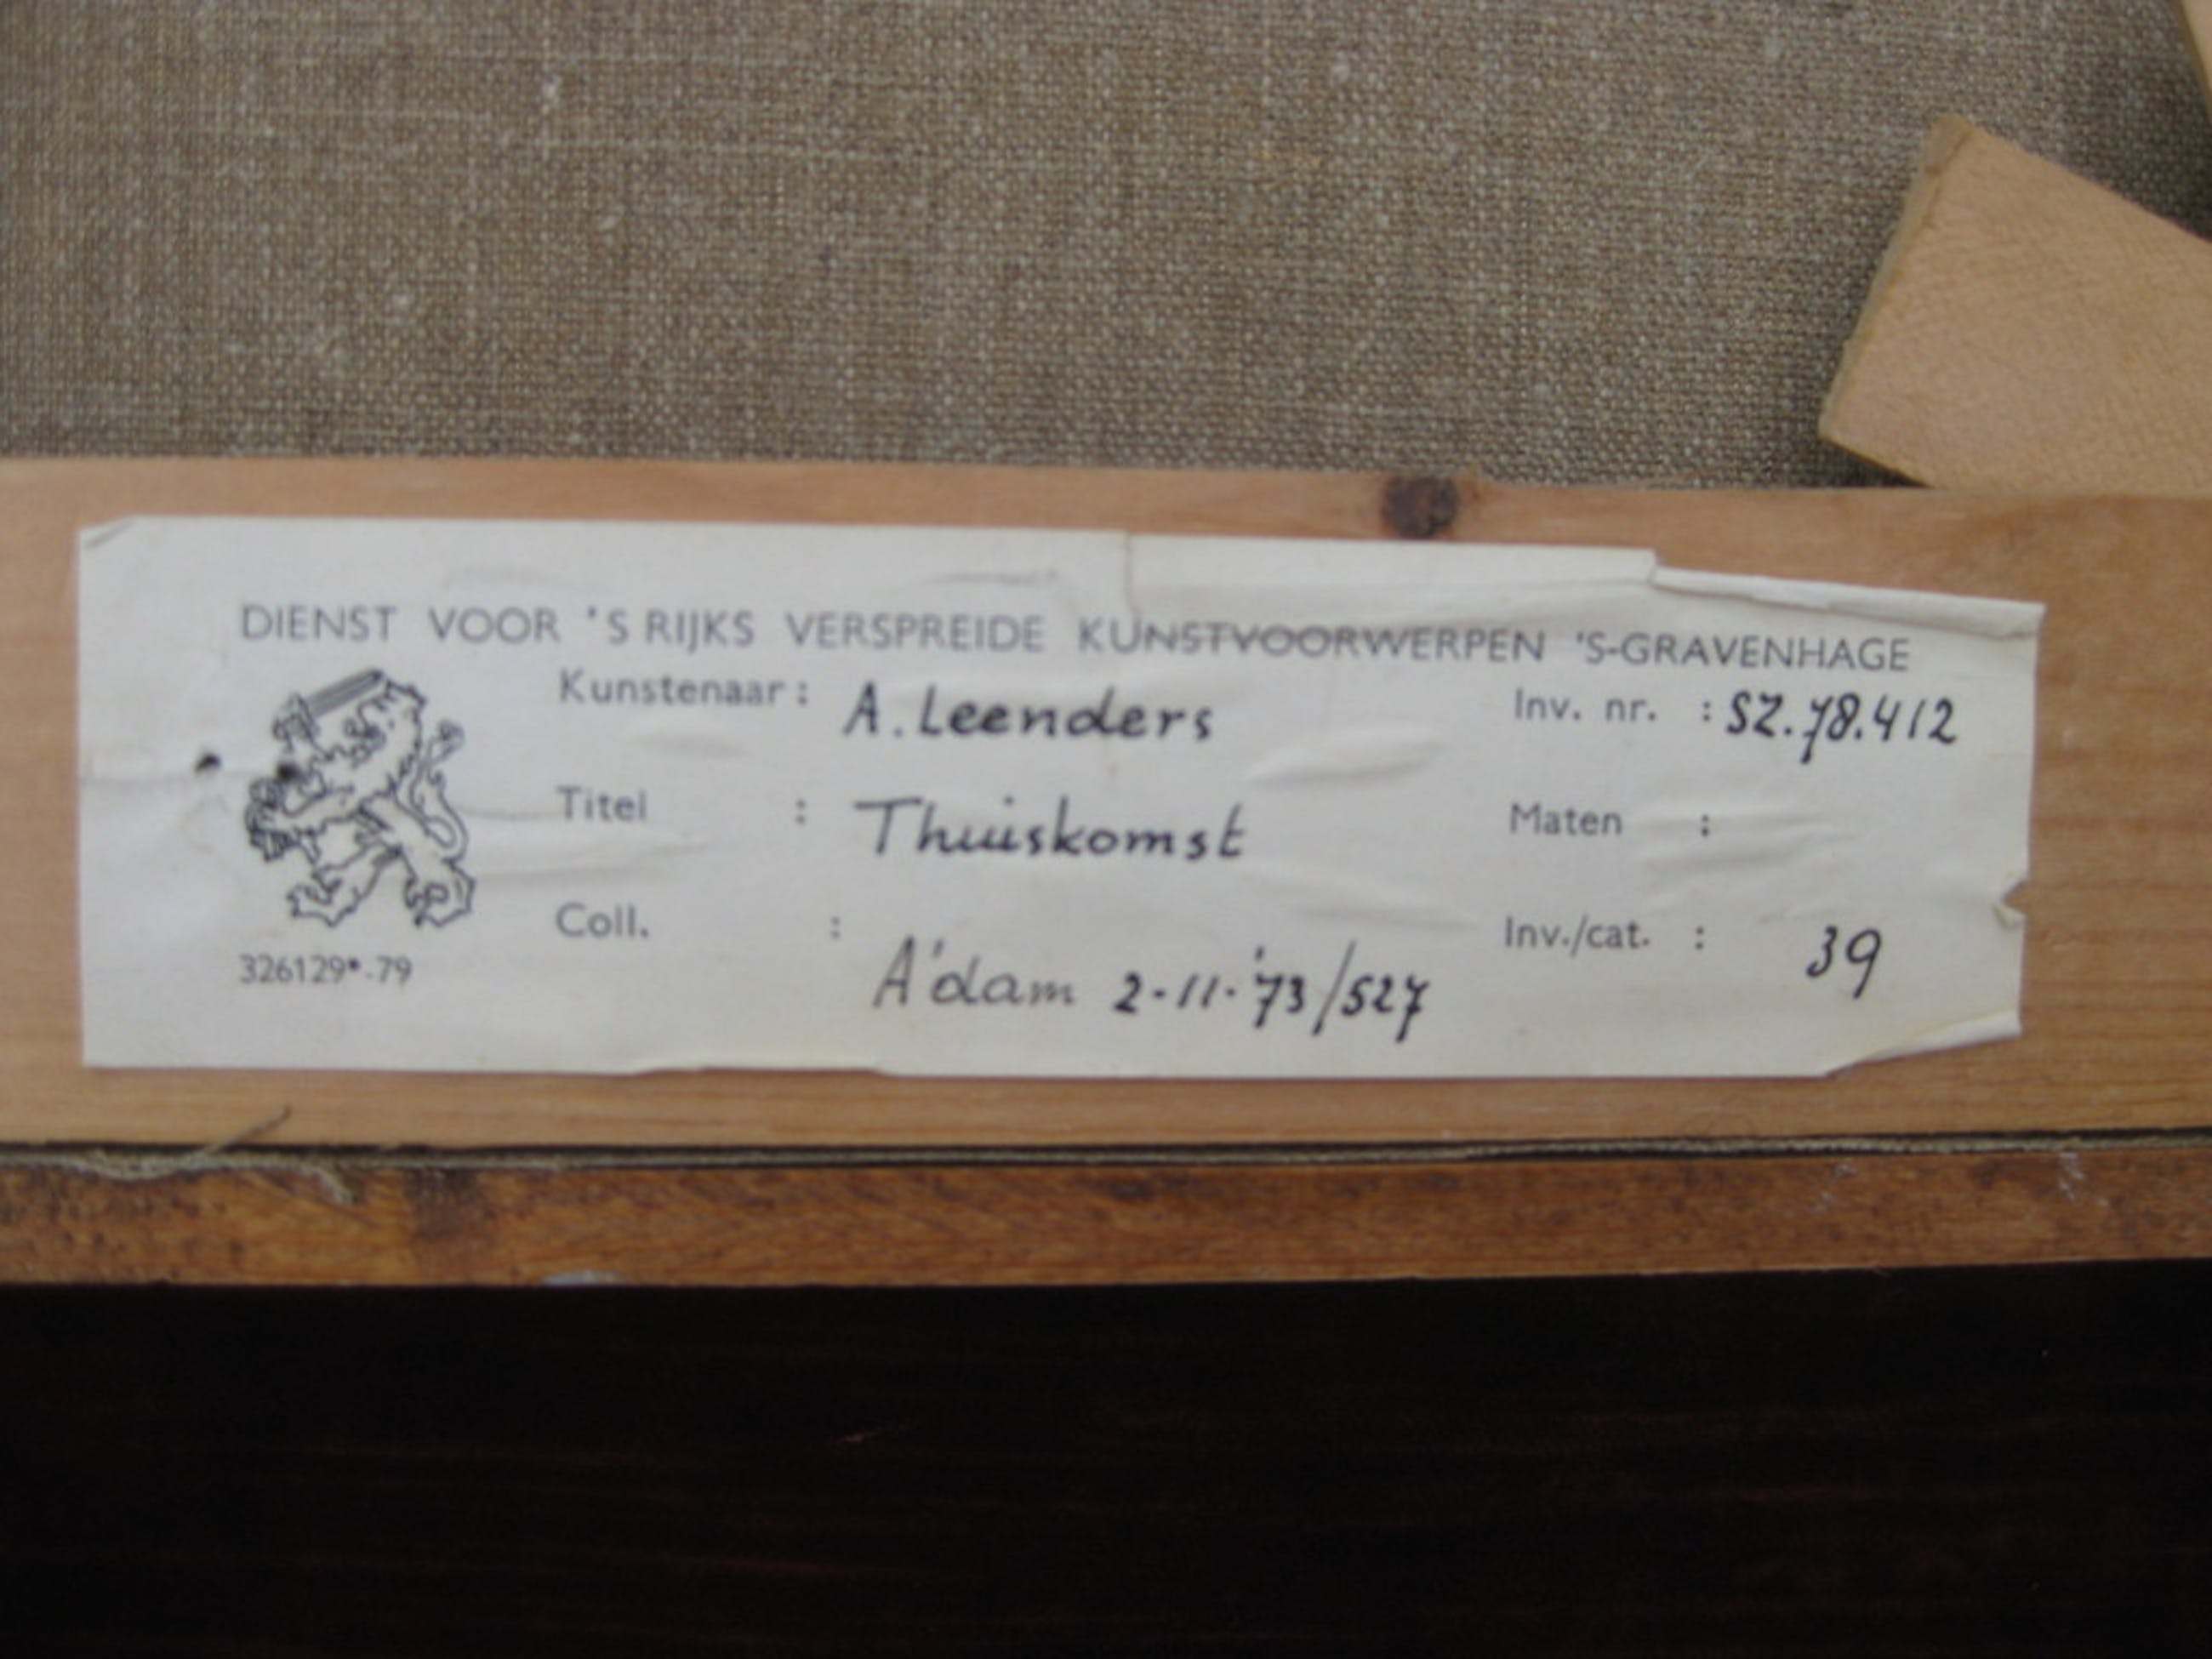 DIENST VOOR 'S RIJKS VERSPREIDE KUNSTVOORWERPEN 'S-GRAVENHAGE
Kunstenaar : A. Leenders Inv. nr. : SZ.78.412
Titel : Thuiskomst Maten :
Coll. : A'dam 2-11-'73/527 Inv./cat. : 39
326129*-79